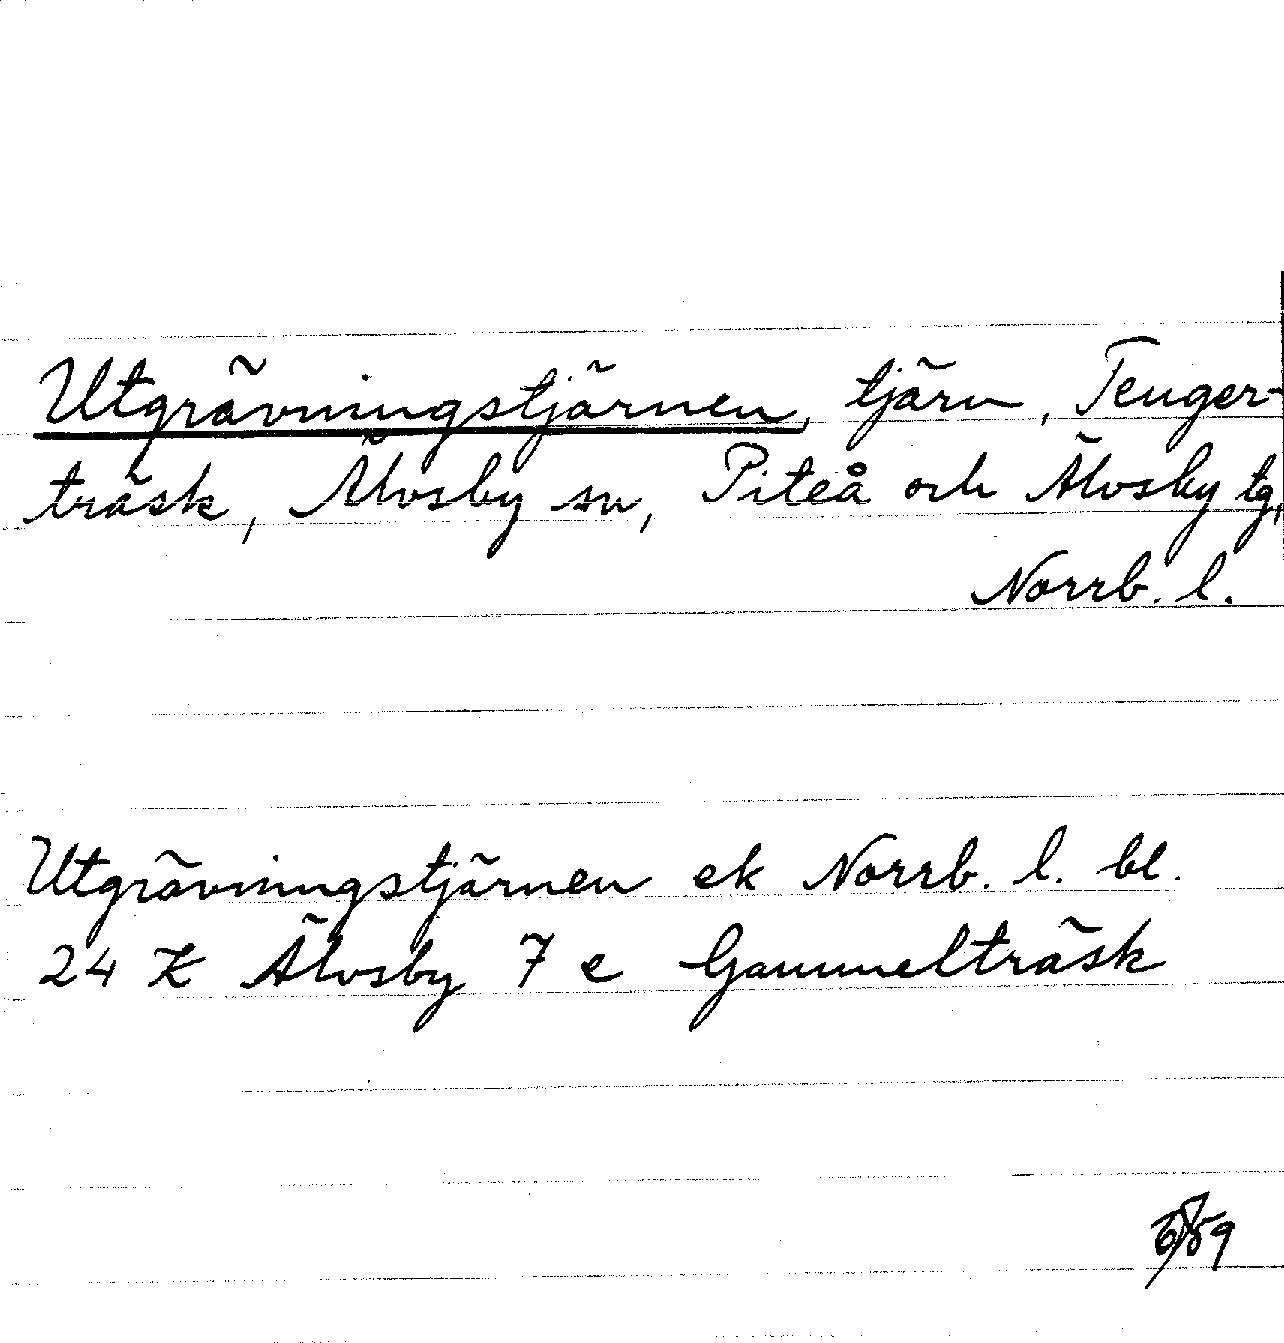 Utgrävningstjärnen, tjärn, Teuger-
träsk, Älvsby sn, Piteå och Älvsby tg,
Norrb. l.
Utgrävningstjärnen ek Norrb. l. bl.
24 K Älvsby 7 e Gammelträsk